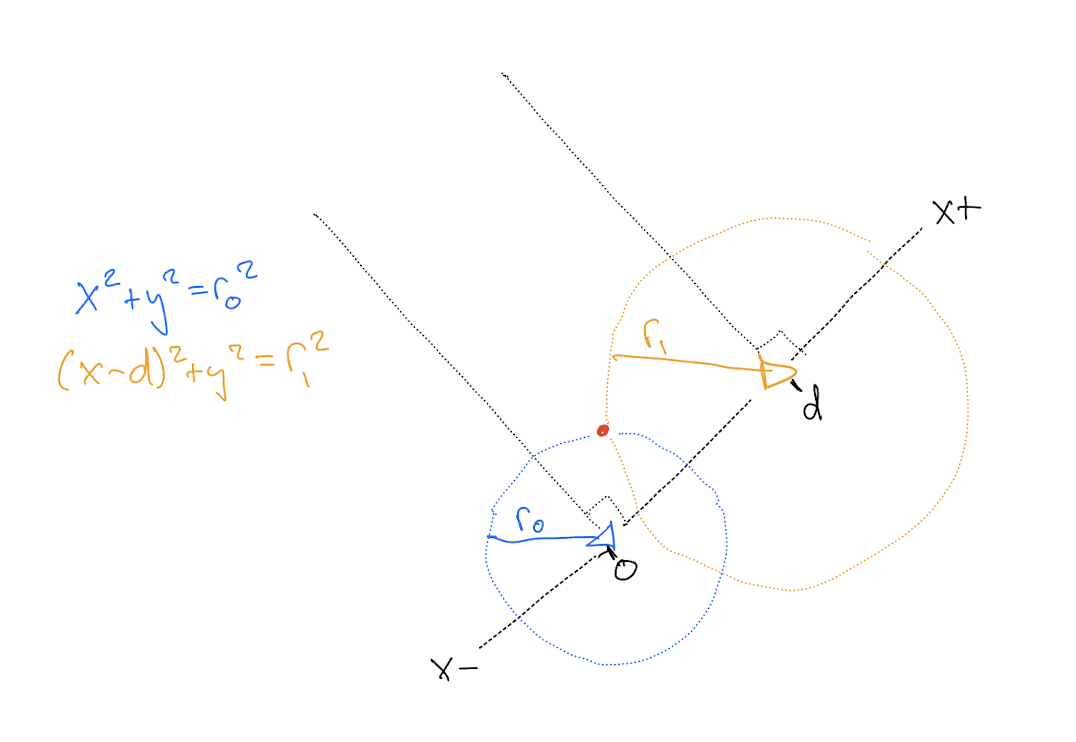 x+
x²+y²=r₀²
(x-d)²+y²=r₁²
r₁
d
r₀
0
x-